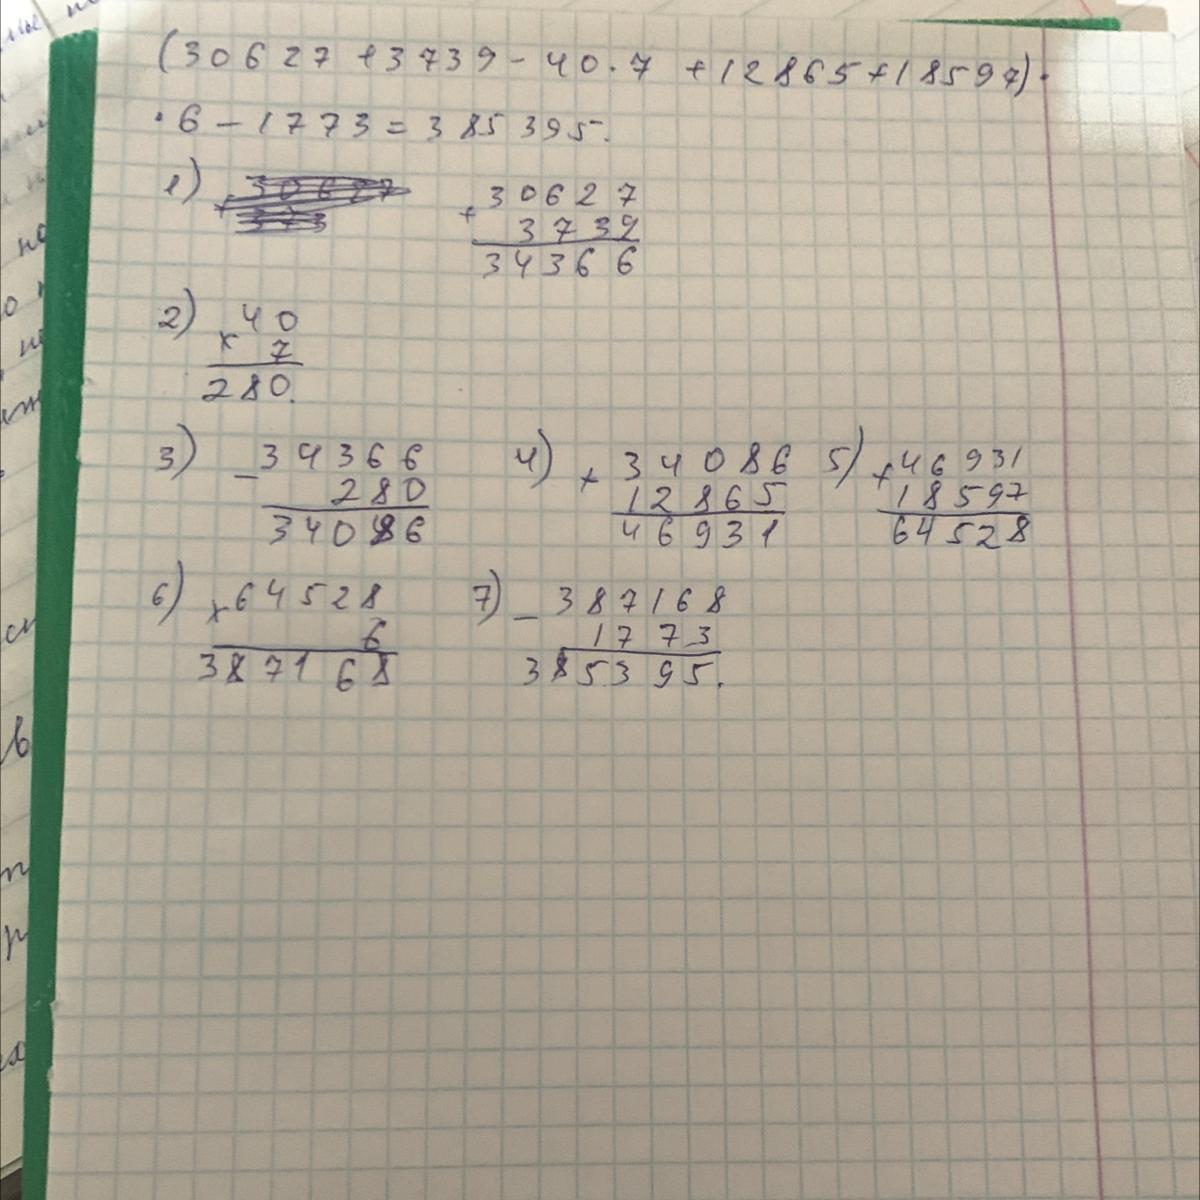 (30627+3739-40·7+12865+18597)·
·6-1773=385395.
1) + 30627
3739
34366
2) × 40
7
280.
3) - 34366
280
34086
4) + 34086
12865
46931
5) + 46931
18597
64528
6) × 64528
6
387168
7) - 387168
1773
385395.